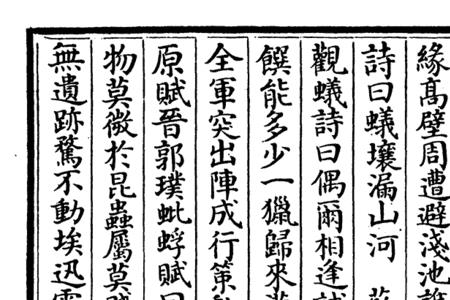 緣髙壁周遭避淺池
詩曰蟻壤漏山河
觀蟻詩曰偶爾相逢
饌能多少一獵歸來
全軍突出陣成行策
原賦晉郭璞蚍蜉賦曰
物莫微於昆蟲屬莫
無遺跡騖不動埃迅